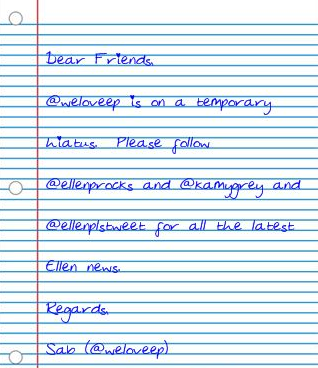 Dear Friends,
@weloveep is on a temporary
hiatus. Please follow
@ellenprocks and @kamygrey and
@ellenplstweet for all the latest
Ellen news.
Regards,
Sab (@weloveep)